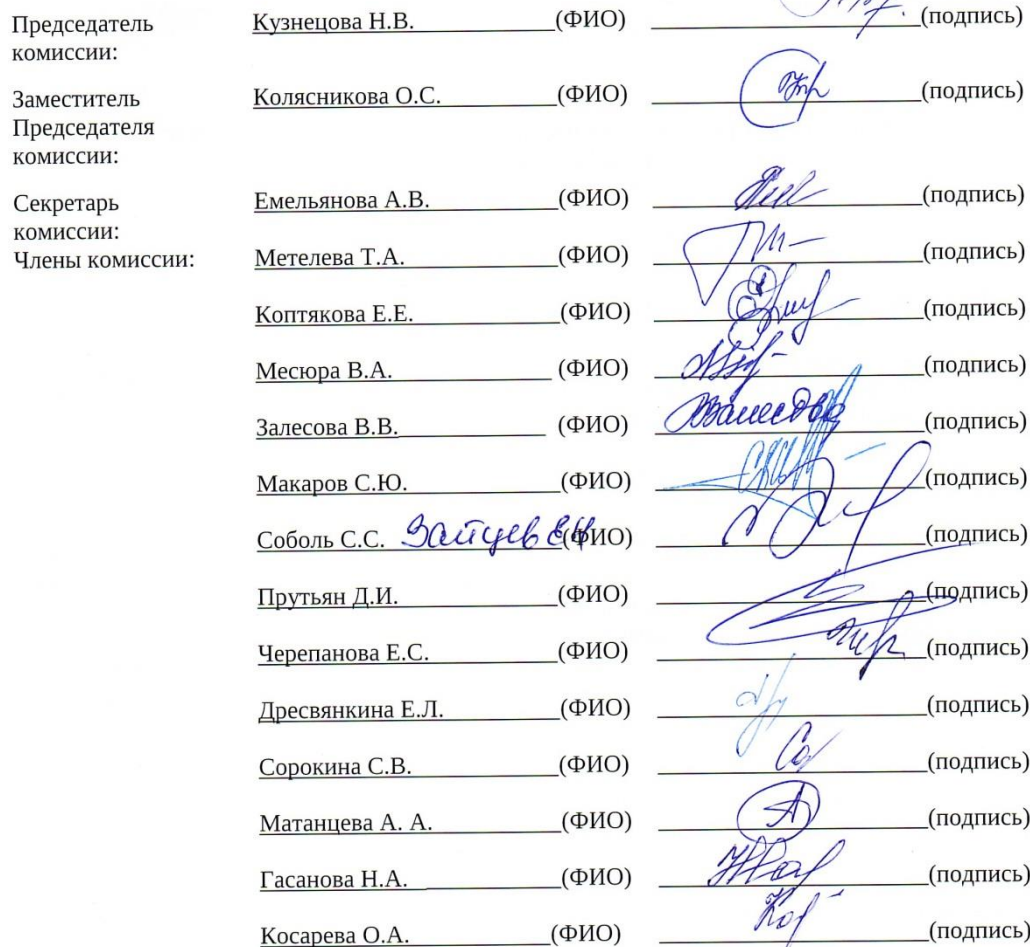 Председатель Кузнецова Н.В. (ФИО) (подпись)
комиссии:
Заместитель Колясникова О.С. (ФИО) (подпись)
Председателя
комиссии:
Секретарь Емельянова А.В. (ФИО) (подпись)
комиссии:
Члены комиссии: Метелева Т.А. (ФИО) (подпись)
Коптякова Е.Е. (ФИО) (подпись)
Месюра В.А. (ФИО) (подпись)
Залесова В.В. (ФИО) (подпись)
Макаров С.Ю. (ФИО) (подпись)
Соболь С.С. Зайцев (ФИО) (подпись)
Прутьян Д.И. (ФИО) (подпись)
Черепанова Е.С. (ФИО) (подпись)
Дресвянкина Е.Л. (ФИО) (подпись)
Сорокина С.В. (ФИО) (подпись)
Матанцева А. А. (ФИО) (подпись)
Гасанова Н.А. (ФИО) (подпись)
Косарева О.А. (ФИО) (подпись)